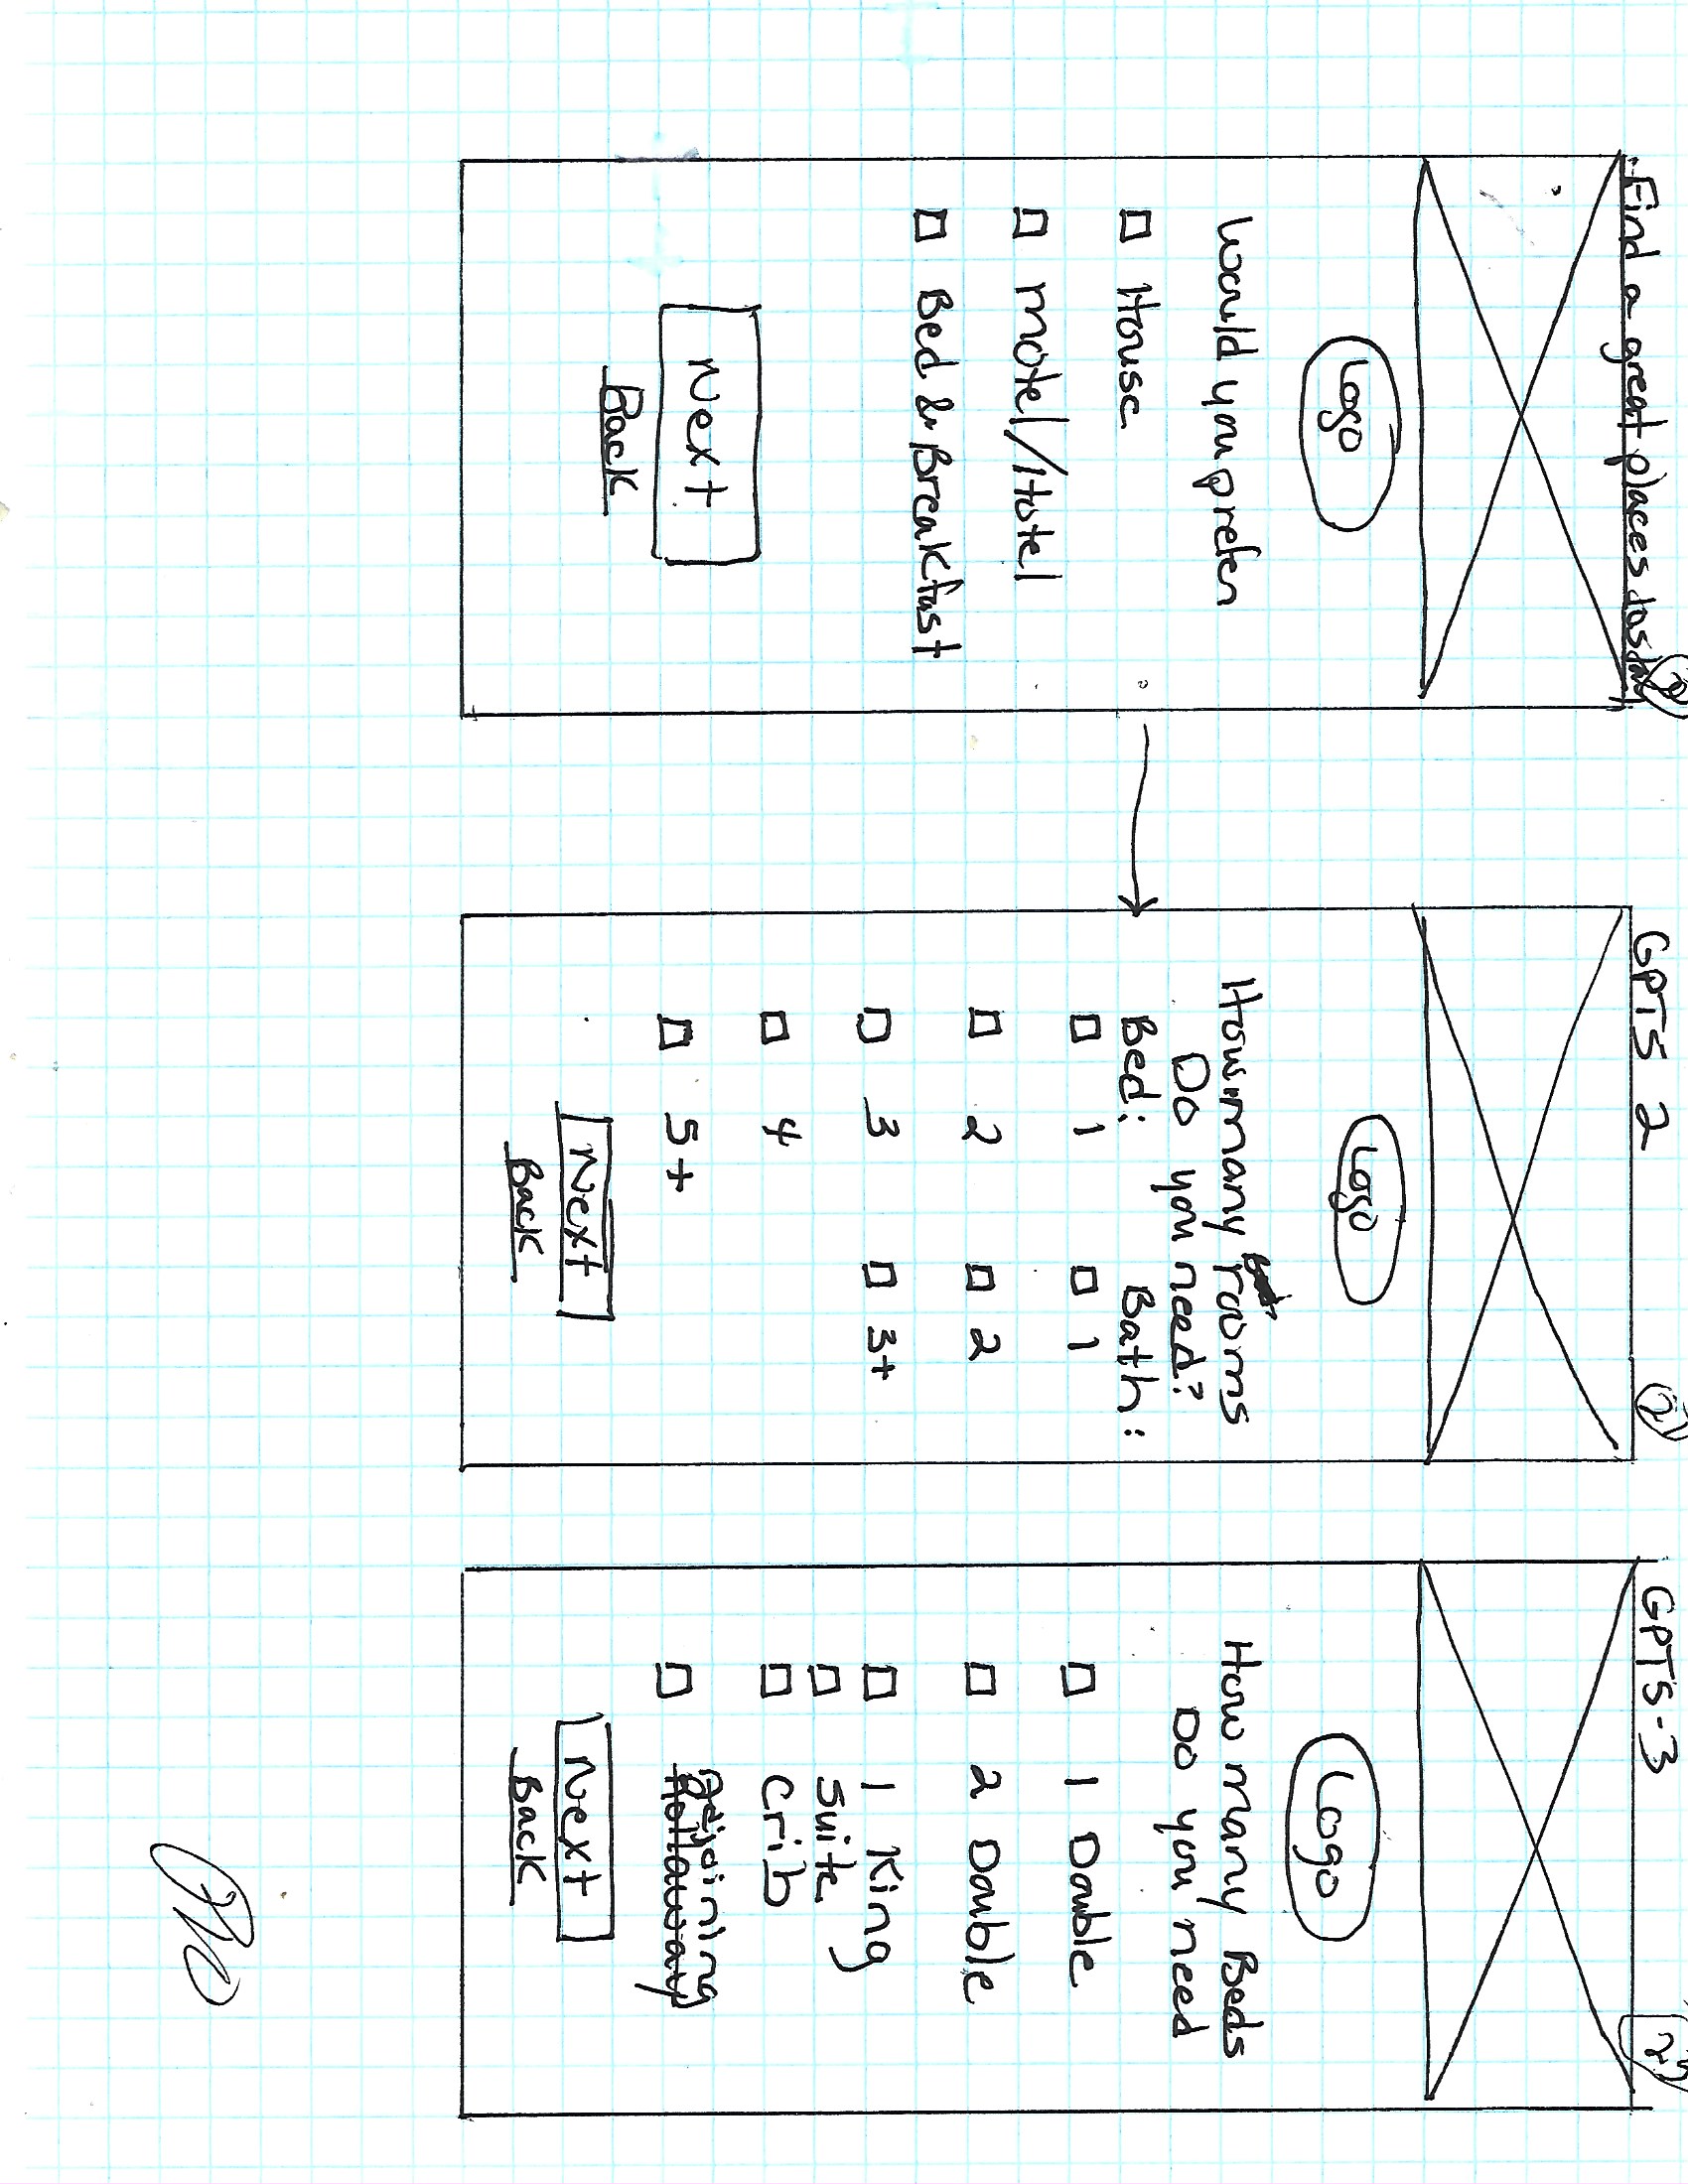 Find a great places to stay
Logo
Would you prefer
House
Motel/Hotel
Bed & Breakfast
Next
Back
GPTS 2
2
Logo
How many rooms
Do you need?
Bed: Bath:
1 1
2 2
3 3+
4
5+
Next
Back
GPTS-3
Logo
How many Beds
Do you need
1 Double
2 Double
1 King
Suite
Crib
Adjoining
Rollaway
Next
Back